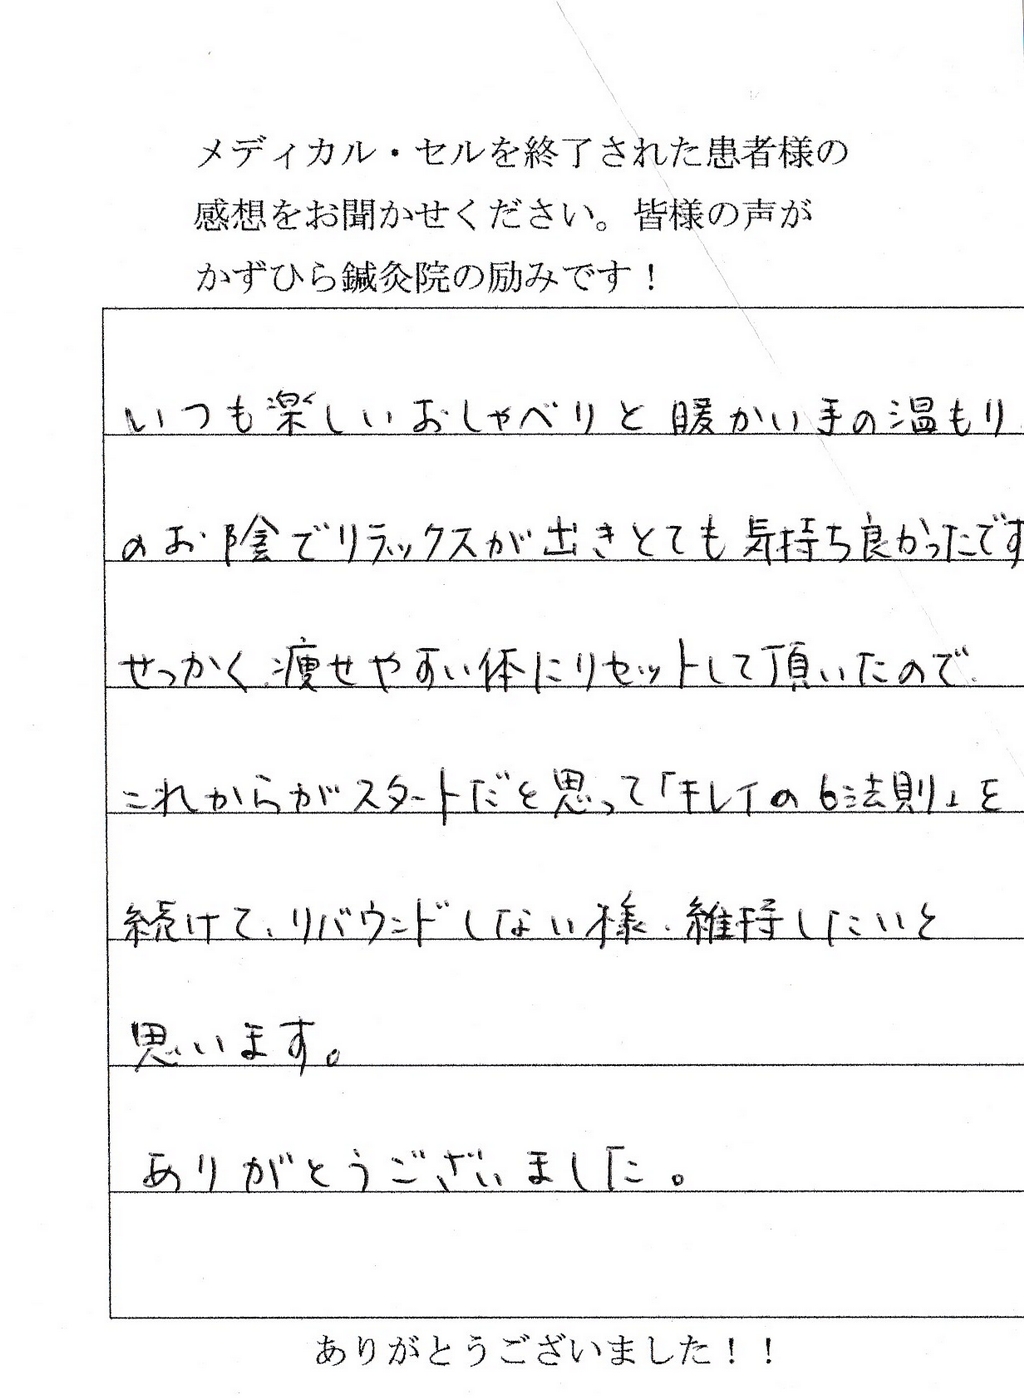 メディカル・セルを終了された患者様の
感想をお聞かせください。皆様の声が
かずひら鍼灸院の励みです！
いつも楽しいおしゃべりと暖かい手の温もり
のお陰でリラックスが出きとても気持ち良かったです
せっかく痩せやすい体にリセットして頂いたので
これからがスタートだと思って「キレイの6法則」を
続けて、リバウンドしない様、維持したいと
思います。
ありがとうございました。
ありがとうございました！！